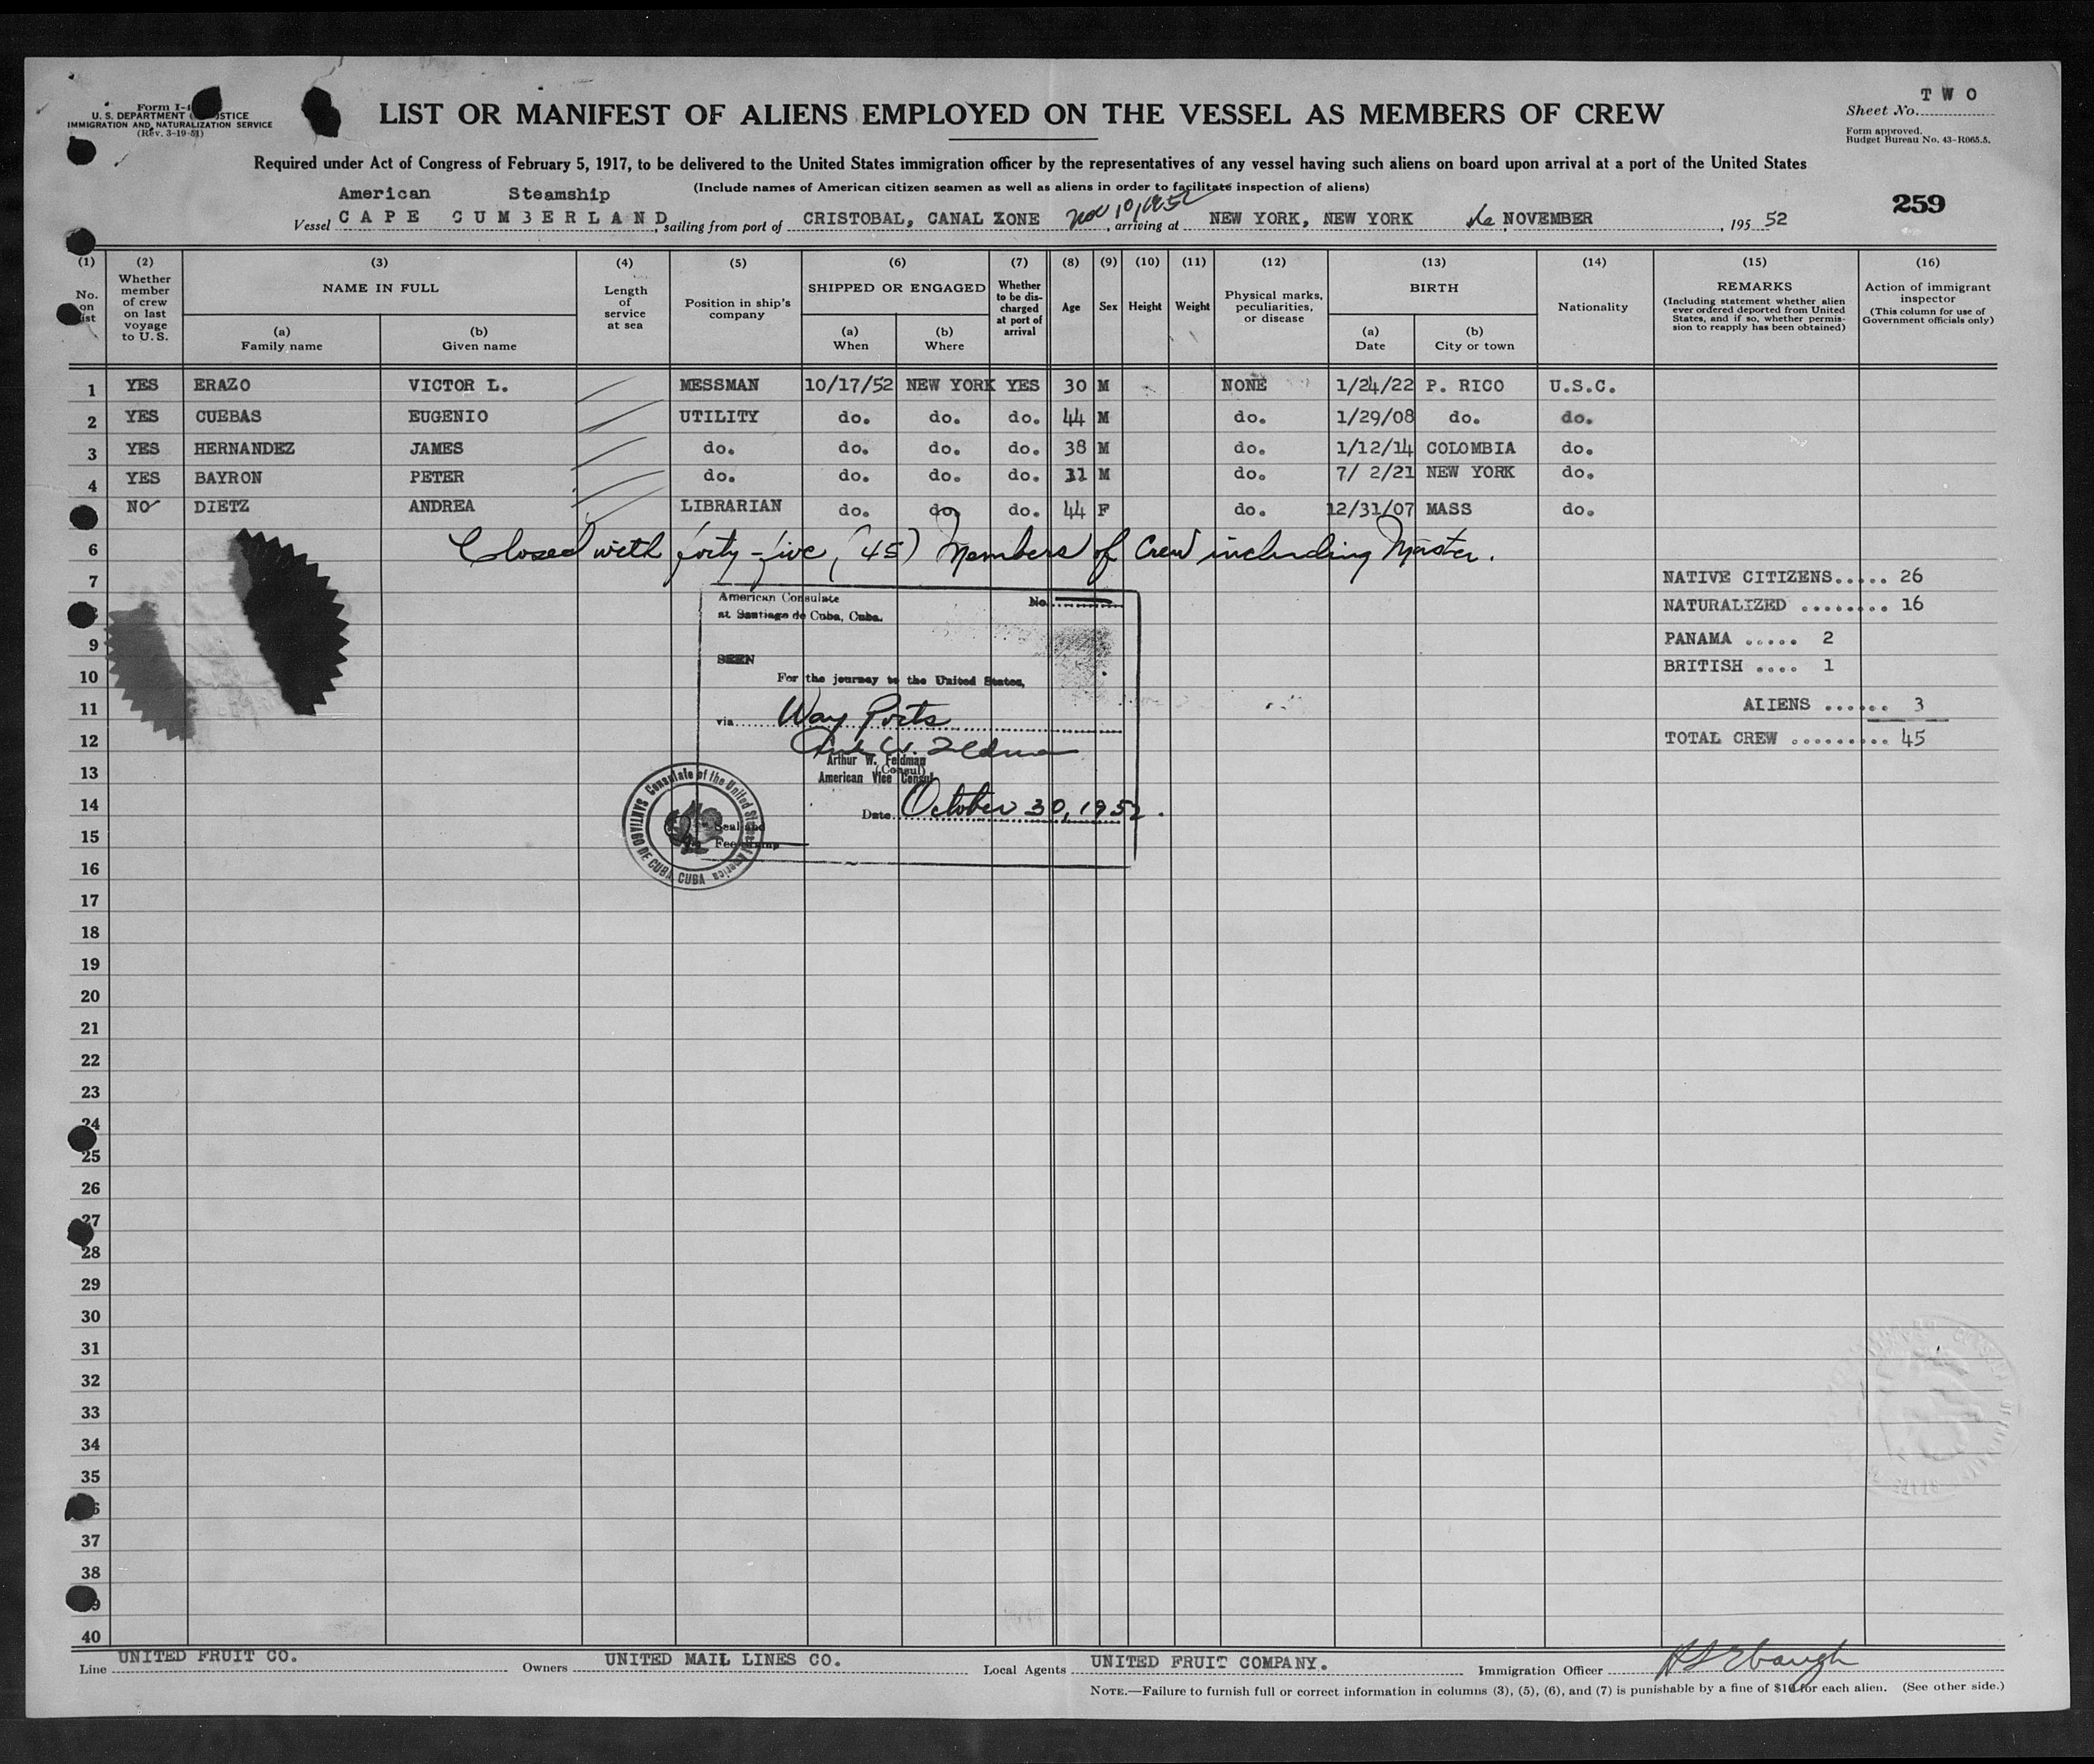 TWO
Form I-4
U. S. DEPARTMENT OF JUSTICE
IMMIGRATION AND NATURALIZATION SERVICE
(Rev. 3-19-51)
LIST OR MANIFEST OF ALIENS EMPLOYED ON THE VESSEL AS MEMBERS OF CREW
Sheet No.
Form approved.
Budget Bureau No. 43-R065.5.
Required under Act of Congress of February 5, 1917, to be delivered to the United States immigration officer by the representatives of any vessel having such aliens on board upon arrival at a port of the United States
American Steamship
(Include names of American citizen seamen as well as aliens in order to facilitate inspection of aliens)
Vessel CAPE CUMBERLAND, sailing from port of CRISTOBAL, CANAL ZONE Nov 10, 1952, arriving at NEW YORK, NEW YORK NOVEMBER, 195 52
259
(1) (2) (3) (4) (5) (6) (7) (8) (9) (10) (11) (12) (13) (14) (15) (16)
No. on list
Whether member of crew on last voyage to U. S.
NAME IN FULL
(a) Family name
(b) Given name
Length of service at sea
Position in ship's company
SHIPPED OR ENGAGED
(a) When
(b) Where
Whether to be discharged at port of arrival
Age
Sex
Height
Weight
Physical marks, peculiarities, or disease
BIRTH
(a) Date
(b) City or town
Nationality
REMARKS
(Including statement whether alien ever ordered deported from United States, and if so, whether permission to reapply has been obtained)
Action of immigrant inspector
(This column for use of Government officials only)
1 YES ERAZO VICTOR L. MESSMAN 10/17/52 NEW YORK YES 30 M NONE 1/24/22 P. RICO U.S.C.
2 YES CUEBAS EUGENIO UTILITY do. do. do. 44 M do. 1/29/08 do. do.
3 YES HERNANDEZ JAMES do. do. do. do. 38 M do. 1/12/14 COLOMBIA do.
4 YES BAYRON PETER do. do. do. do. 31 M do. 7/ 2/21 NEW YORK do.
NO DIETZ ANDREA LIBRARIAN do. do. do. 44 F do. 12/31/07 MASS do.
6 Closed with forty-five, (45) Members of Crew including Master.
7
NATIVE CITIZENS..... 26
NATURALIZED ........ 16
PANAMA ..... 2
BRITISH .... 1
ALIENS ...... 3
TOTAL CREW ......... 45
American Consulate
at Santiago de Cuba, Cuba.
No.
SEEN
For the journey to the United States,
via Way Ports
Arthur W. Feldman
(Consul)
American Vice Consul
Date October 30, 1952.
Seal and
Fee Stamp
Consulate of the United States of America
SANTIAGO DE CUBA, CUBA
9
10
11
12
13
14
15
16
17
18
19
20
21
22
23
24
25
26
27
28
29
30
31
32
33
34
35
37
38
40
Line UNITED FRUIT CO. Owners UNITED MAIL LINES CO. Local Agents UNITED FRUIT COMPANY. Immigration Officer
NOTE.—Failure to furnish full or correct information in columns (3), (5), (6), and (7) is punishable by a fine of $10 for each alien. (See other side.)